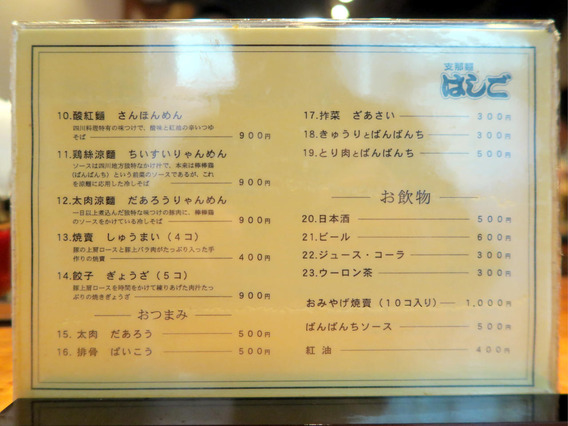 支那麺
はしご
10.酸紅麺 さんほんめん
四川料理特有の味つけで、酸味と紅油の辛いつゆ
そば 900円
11.鶏絲涼麺 ちいすいりゃんめん
ソースは四川地方独特なかけ汁で、本来は棒棒鶏
(ばんばんぢ)という前菜のソースであるが、これ
を涼麺に応用した冷しそば 900円
12.太肉涼麺 だあろうりゃんめん
一日以上煮込んだ独特な味つけの豚肉に、棒棒鶏
のソースをかけている冷しそば 900円
13.焼賣 しゅうまい(4コ)
豚の上肩ロースと豚上バラ肉がたっぷり入った手
作りの焼賣 400円
14.餃子 ぎょうざ(5コ)
豚上肩ロースを時間をかけて練りあげた肉汁たっ
ぷりの焼きぎょうざ 900円
おつまみ
15.太肉 だあろう 500円
16.排骨 ぱいこう 500円
17.搾菜 ざあさい 300円
18.きゅうりとばんばんぢ 300円
19.とり肉とばんばんぢ 500円
お飲物
20.日本酒 500円
21.ビール 600円
22.ジュース・コーラ 300円
23.ウーロン茶 300円
おみやげ焼賣(10コ入り) 1,000円
ばんばんぢソース 500円
紅油 400円